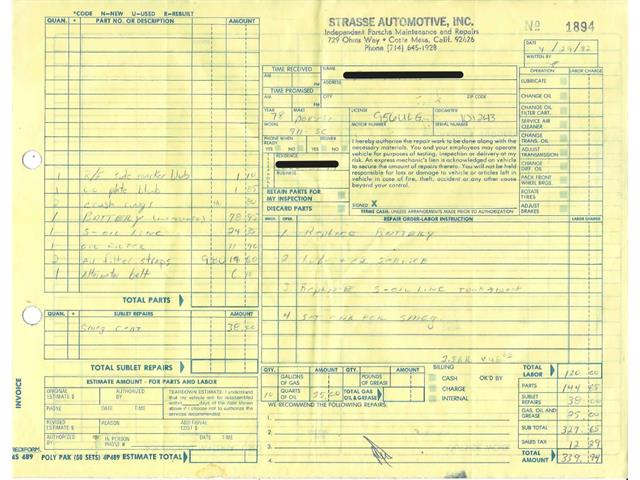 *CODE N-NEW U-USED R-REBUILT
QUAN. * PART NO. OR DESCRIPTION AMOUNT
STRASSE AUTOMOTIVE, INC.
Independent Porsche Maintenance and Repairs
729 Ohms Way • Costa Mesa, Calif. 92626
Phone (714) 645-1928
No 1894
DATE 4/29/82
WRITTEN BY
TIME RECEIVED
AM
PM
NAME
ADDRESS
TIME PROMISED
AM
PM
CITY ZIP CODE
YEAR 78 MAKE Porsche LICENSE 956ULG ODOMETER
MODEL 911-SC MOTOR NUMBER SERIAL NUMBER
PHONE WHEN READY YES NO DELIVER YES NO
RESIDENCE
BUSINESS
RETAIN PARTS FOR MY INSPECTION
DISCARD PARTS
I hereby authorize the repair work to be done along with the
necessary materials. You and your employees may operate
vehicle for purposes of testing, inspection or delivery at my
risk. An express mechanic's lien is acknowledged on vehicle
to secure the amount of repairs thereto. You will not be held
responsible for loss or damage to vehicle or articles left
in vehicle in case of fire, theft, accident or any other cause
beyond your control.
SIGNED X
TERMS CASH, UNLESS ARRANGEMENTS MADE PRIOR TO AUTHORIZATION
OPERATION LABOR CHARGE
LUBRICATE
CHANGE OIL
CHANGE OIL FILTER CART.
SERVICE AIR CLEANER
CHANGE TRANS. OIL
ADJUST TRANSMISSION
CHANGE DIFF. OIL
PACK FRONT WHEEL BRGS.
ROTATE TIRES
ADJUST BRAKES
1 side marker bulb
1 plate bulb
2 crush rings 80
1 BATTERY 78 95
1 S-OIL LINE 24
1 OIL FILTER 11 90
2 Air filter straps
1 Alternator belt
TOTAL PARTS
QUAN. * SUBLET REPAIRS
Smog cert 38.00
TOTAL SUBLET REPAIRS
MECH. OPER. REPAIR ORDER-LABOR INSTRUCTION LABOR CHARGE
1 Replace BATTERY
2 Lube SERVICE
3 Replace S-OIL LINE
4 Set CAR FOR SMOG
ESTIMATE AMOUNT - FOR PARTS AND LABOR
ORIGINAL ESTIMATE $ REVISED ESTIMATE $
TEARDOWN ESTIMATE. I understand
that my vehicle will be reassembled
within days of the date shown
above if I choose not to authorize the
services recommended.
PHONE DATE TIME
AUTHORIZED BY ADDITIONAL COST $
AUTHORIZED IN PERSON PHONE # DATE TIME
INVOICE
REDIFORM.
4S 489 POLY PAK (50 SETS) 4P489 ESTIMATE TOTAL
QTY. AMOUNT QTY. AMOUNT
GALLONS OF GAS POUNDS OF GREASE
10 QUARTS OF OIL 25.00 TOTAL GAS OIL & GREASE
WE RECOMMEND THE FOLLOWING REPAIRS.
1
2
3
4
BILLING OK'D BY
CASH
CHARGE
INTERNAL
TOTAL LABOR 120 00
PARTS 144 65
SUBLET REPAIRS 38 00
GAS, OIL AND GREASE 25 00
SUB TOTAL 327.65
SALES TAX 12 29
TOTAL AMOUNT 339.94